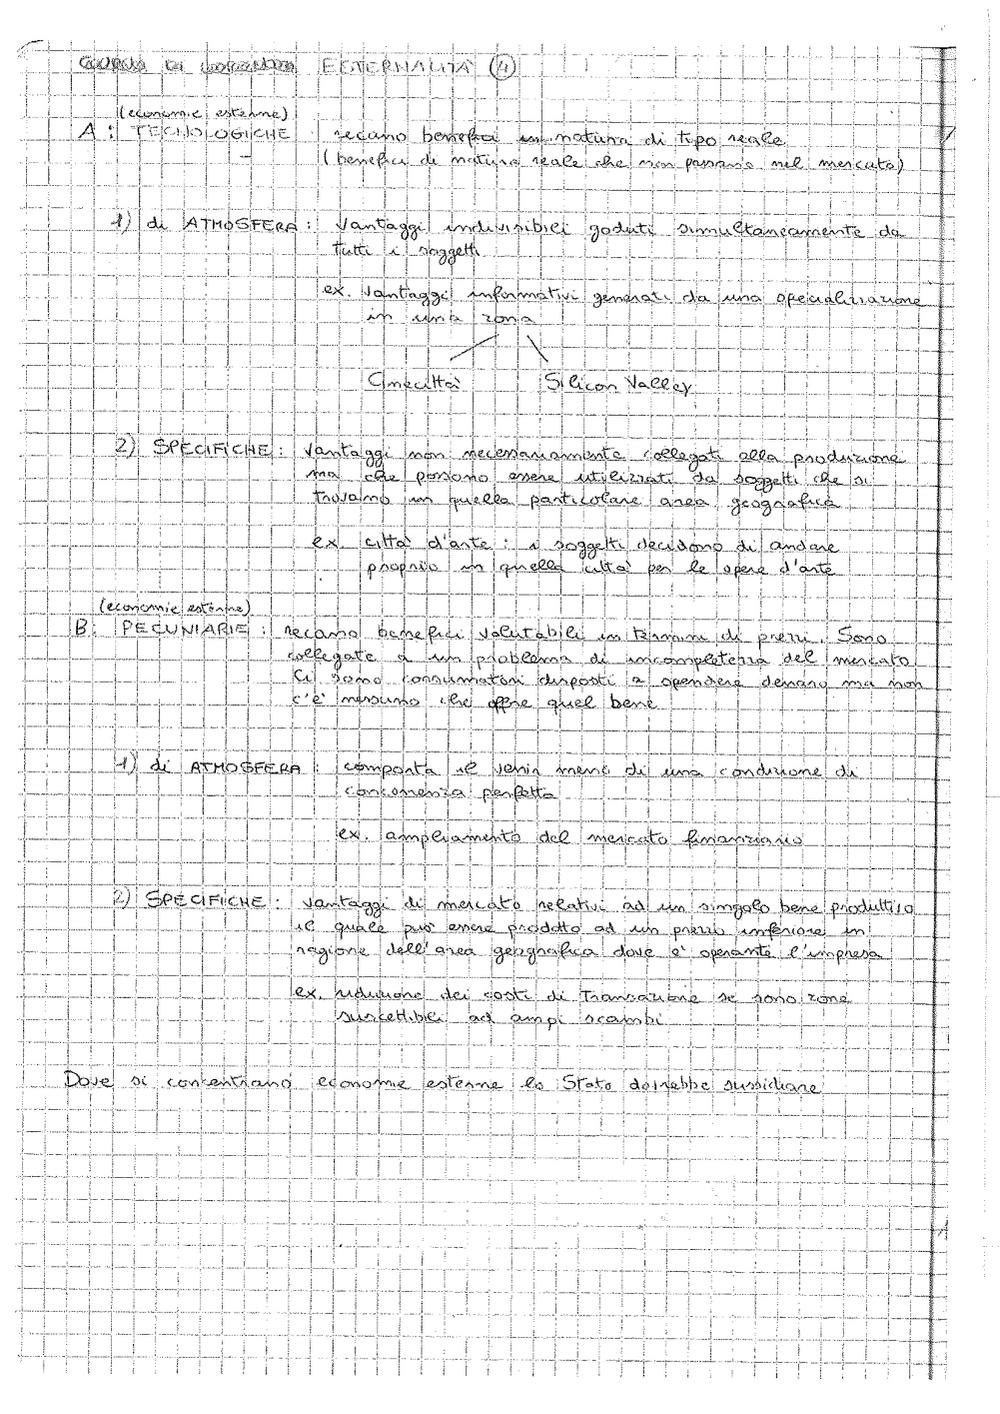 ESTERNALITÀ (4)
(economie esterne)
A: TECNOLOGICHE: recano benefici in natura di tipo reale
(benefici di natura reale che non passano nel mercato)
1) di ATMOSFERA: vantaggi indivisibili goduti simultaneamente da
tutti i soggetti
ex. vantaggi informativi generati da una specializzazione
in una zona
Cinecittà Silicon Valley
2) SPECIFICHE: vantaggi non necessariamente collegati alla produzione
ma che possono essere utilizzati da soggetti che si
trovano in quella particolare area geografica
ex città d'arte: i soggetti decidono di andare
proprio in quella città per le opere d'arte
(economie esterne)
B: PECUNIARIE: recano benefici valutabili in termini di prezzi. Sono
collegate a un problema di incompletezza del mercato
Ci sono consumatori disposti a spendere denaro ma non
c'è nessuno che offre quel bene
1) di ATMOSFERA: comporta il venir meno di una condizione di
concorrenza perfetta
ex. ampliamento del mercato finanziario
2) SPECIFICHE: vantaggi di mercato relativi ad un singolo bene produttivo
il quale può essere prodotto ad un prezzo inferiore in
ragione dell'area geografica dove è operante l'impresa
ex. riduzione dei costi di transazione se sono zone
suscettibili ad ampi scambi
Dove si concentrano economie esterne lo Stato dovrebbe sussidiare